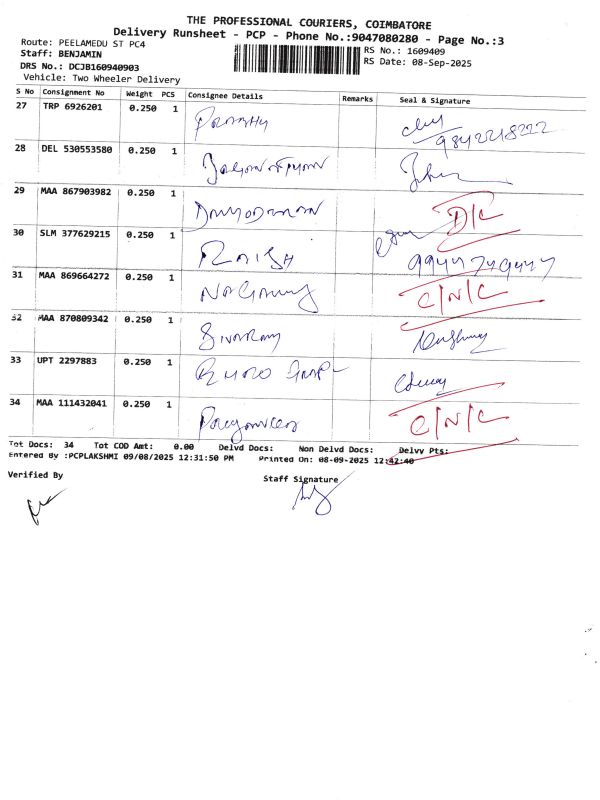 THE PROFESSIONAL COURIERS, COIMBATORE
Delivery Runsheet - PCP - Phone No.:9047080280 - Page No.:3
Route: PEELAMEDU ST PC4
RS No.: 1609409
Staff: BENJAMIN
RS Date: 08-Sep-2025
DRS No.: DCJB160940903
Vehicle: Two Wheeler Delivery
S No Consignment No Weight PCS Consignee Details Remarks Seal & Signature
27 TRP 6926201 0.250 1
9842218222
28 DEL 530553580 0.250 1
29 MAA 867903982 0.250 1 DAMODARAN D/C
30 SLM 377629215 0.250 1 RAJESH
9944749447
31 MAA 869664272 0.250 1 C/N/C
32 MAA 870809342 0.250 1 SIVARAM
33 UPT 2297883 0.250 1
34 MAA 111432041 0.250 1 C/N/C
Tot Docs: 34 Tot COD Amt: 0.00 Delvd Docs: Non Delvd Docs: Delvv Pts:
Entered By :PCPLAKSHMI 09/08/2025 12:31:50 PM Printed On: 08-09-2025 12:42:40
Verified By Staff Signature